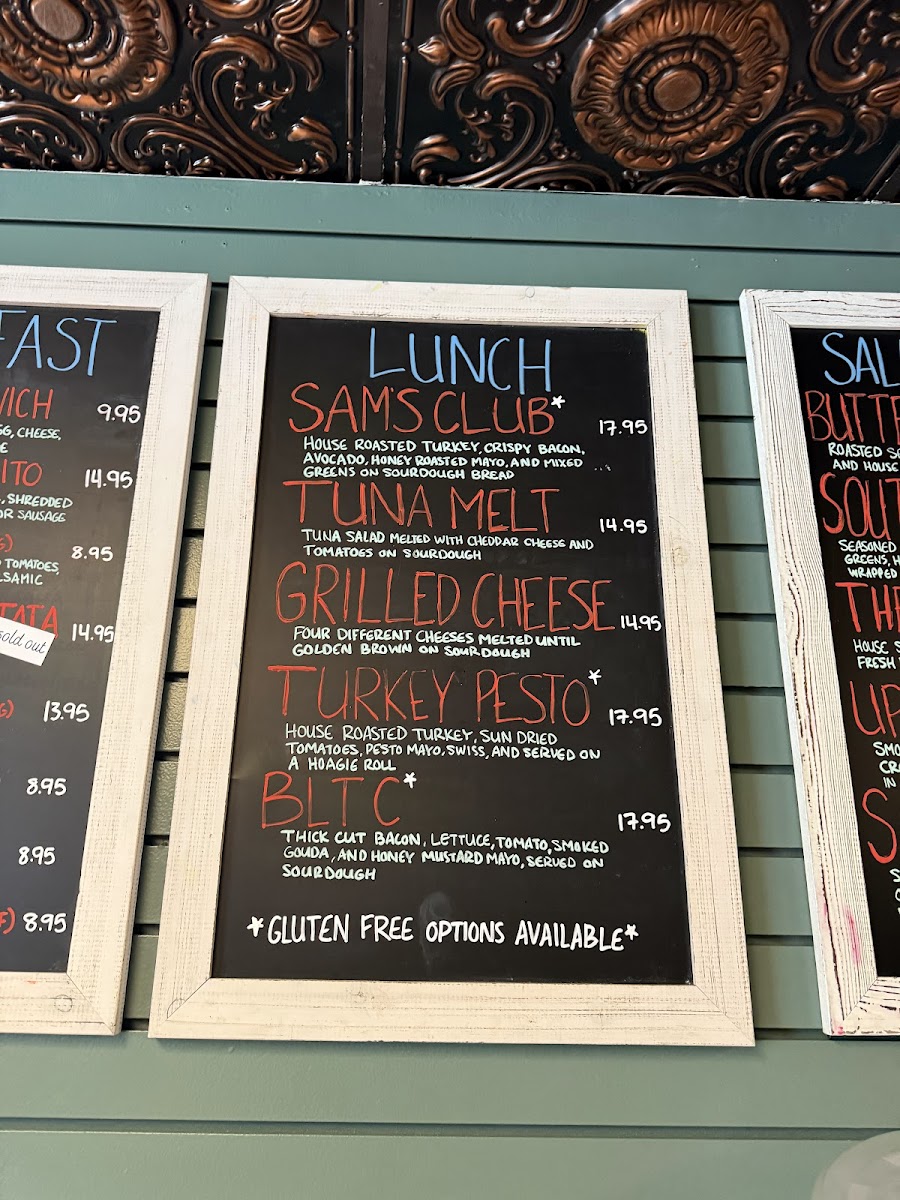 FAST
WICH 9.95
GG, CHEESE,
ITO 14.95
, SHREDDED
OR SAUSAGE
G) 8.95
TOMATOES,
LSAMIC
TATA 14.95
sold out
G) 13.95
8.95
8.95
F) 8.95
LUNCH
SAM'S CLUB* 17.95
HOUSE ROASTED TURKEY, CRISPY BACON,
AVOCADO, HONEY ROASTED MAYO, AND MIXED
GREENS ON SOURDOUGH BREAD
TUNA MELT 14.95
TUNA SALAD MELTED WITH CHEDDAR CHEESE AND
TOMATOES ON SOURDOUGH
GRILLED CHEESE 14.95
FOUR DIFFERENT CHEESES MELTED UNTIL
GOLDEN BROWN ON SOURDOUGH
TURKEY PESTO* 17.95
HOUSE ROASTED TURKEY, SUN DRIED
TOMATOES, PESTO MAYO, SWISS, AND SERVED ON
A HOAGIE ROLL
BLTC* 17.95
THICK CUT BACON, LETTUCE, TOMATO, SMOKED
GOUDA, AND HONEY MUSTARD MAYO, SERVED ON
SOURDOUGH
*GLUTEN FREE OPTIONS AVAILABLE*
SAL
BUTTE
ROASTED SE
AND HOUSE
SOUT
SEASONED
GREENS, H
WRAPPED
THE
HOUSE S
FRESH
UP
SMO
CR
IN
S